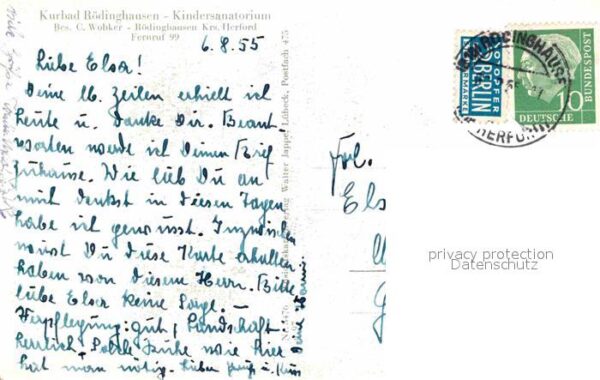 Kurbad Rödinghausen - Kindersanatorium
Bes. C. Wobker - Rödinghausen Krs. Herford
Fernruf 99
6.8.55
Liebe Elsa!
Deine lb. Zeilen erhielt ich
heute u. danke Dir. Beant-
worten werde ich Deinen Brief
zuhause. Wie lieb Du an
mich denkst in diesen Tagen
habe ich gewusst. Inzwischen
wirst Du diese Karte erhalten
haben von diesem Herrn. Bitte
liebe Elsa keine Sorge. -
Verpflegung: gut, Landschaft:
herrlich. Solche Ruhe wie hier
hat man nötig. Lieben Gruß u. Kuss
Deine
Walter Jappe, Lübeck, Postfach 475
Frl.
Els
NOTOPFER
2 BERLIN
STEUERMARKE
RÖDINGHAUSEN
HERFORD
10
DEUTSCHE
BUNDESPOST
privacy protection
Datenschutz